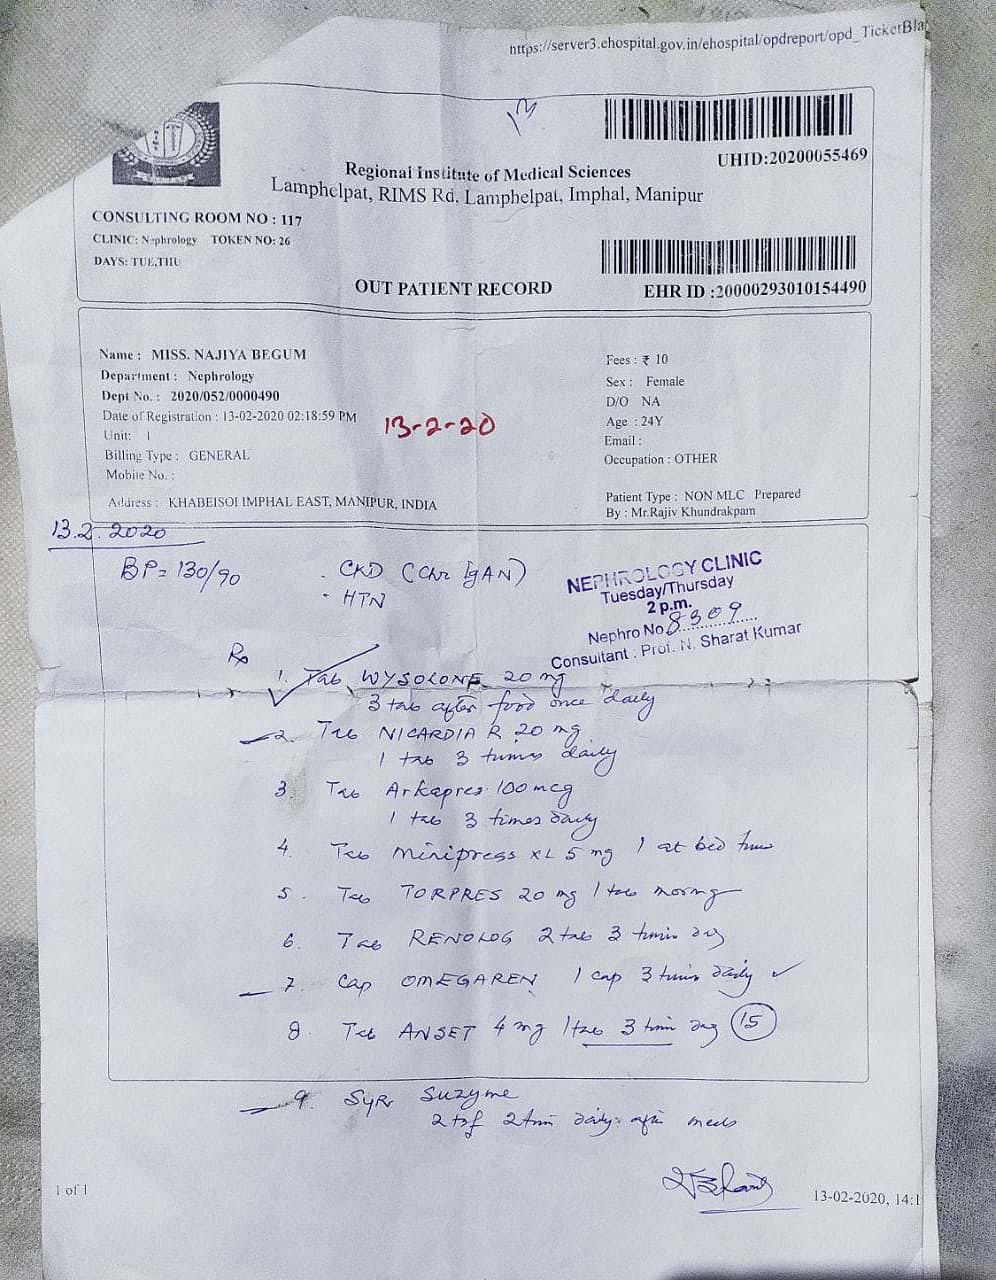 https://server3.ehospital.gov.in/ehospital/opdreport/opd_TicketBla
13
UHID:20200055469
Regional Institute of Medical Sciences
Lamphelpat, RIMS Rd, Lamphelpat, Imphal, Manipur
CONSULTING ROOM NO : 117
CLINIC: Nephrology TOKEN NO: 26
DAYS: TUE,THU
OUT PATIENT RECORD
EHR ID :20000293010154490
Name : MISS. NAJIYA BEGUM
Department : Nephrology
Dept No. : 2020/052/0000490
Date of Registration : 13-02-2020 02:18:59 PM
Unit: 1
Billing Type : GENERAL
Mobile No. :
Address : KHABEISOI IMPHAL EAST, MANIPUR, INDIA
13-2-20
Fees : ₹ 10
Sex : Female
D/O NA
Age : 24Y
Email :
Occupation : OTHER
Patient Type : NON MLC Prepared
By : Mr.Rajiv Khundrakpam
13.2.2020
BP = 130/90
. CKD (Chr IgAN)
. HTN
NEPHROLOGY CLINIC
Tuesday/Thursday
2 p.m.
Nephro No 8309
Consultant : Prof. N. Sharat Kumar
Rx
1. Tab WYSOLONE 20 mg
3 tab after food once daily
2. Tab NICARDIA R 20 mg
1 tab 3 times daily
3. Tab Arkapres 100 mcg
1 tab 3 times daily
4. Tab Minipress XL 5 mg 1 at bed time
5. Tab TORPRES 20 mg 1 tab morning
6. Tab RENOLOG 2 tab 3 times day
7. Cap OMEGAREN 1 cap 3 times daily
8. Tab ANSET 4 mg 1 tab 3 time day 15
9. Syr Suzyme
2 tsf 2 time daily after meals
1 of 1
13-02-2020, 14:1